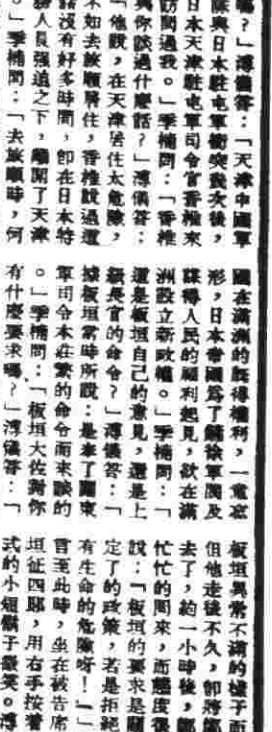 嗎?」溥儀答:「天津中國軍
隊與日本駐屯軍衝突幾次後,
日本天津駐屯軍司令官香椎來
訪問過我。」季楠問:「香椎
與你談過什麼話?」溥儀答:
「他說,在天津居住太危險,
不如去旅順居住,香椎說過這
話沒有好多時間,卽在日本特
務人員強迫之下,離開了天津
。」季楠問:「去旅順時,何
國在滿洲的旣得權利,一意忘
形,日本帝國爲了
謀得人民的福利起見,欲在滿
洲設立新政權。」季楠問:「
這是板垣自己的意見,還是上
級長官的命令?」溥儀答:「
據板垣當時所說:是奉了關東
軍司令本莊繁的命令而來談的
。」季楠問:「板垣大佐對你
有什麼要求嗎?」溥儀答:「
板垣異常不滿的樣子而
但他走後不久,卽將鄭
去了,約一小時後,鄭
忙忙的回來,而態度很
說:「板垣的要求是關
定了的政策,若是拒絕
有生命的危險呀!」」
言至此時,坐在被告席
垣征四郎,用右手按着
式的小短鬍子發笑。溥